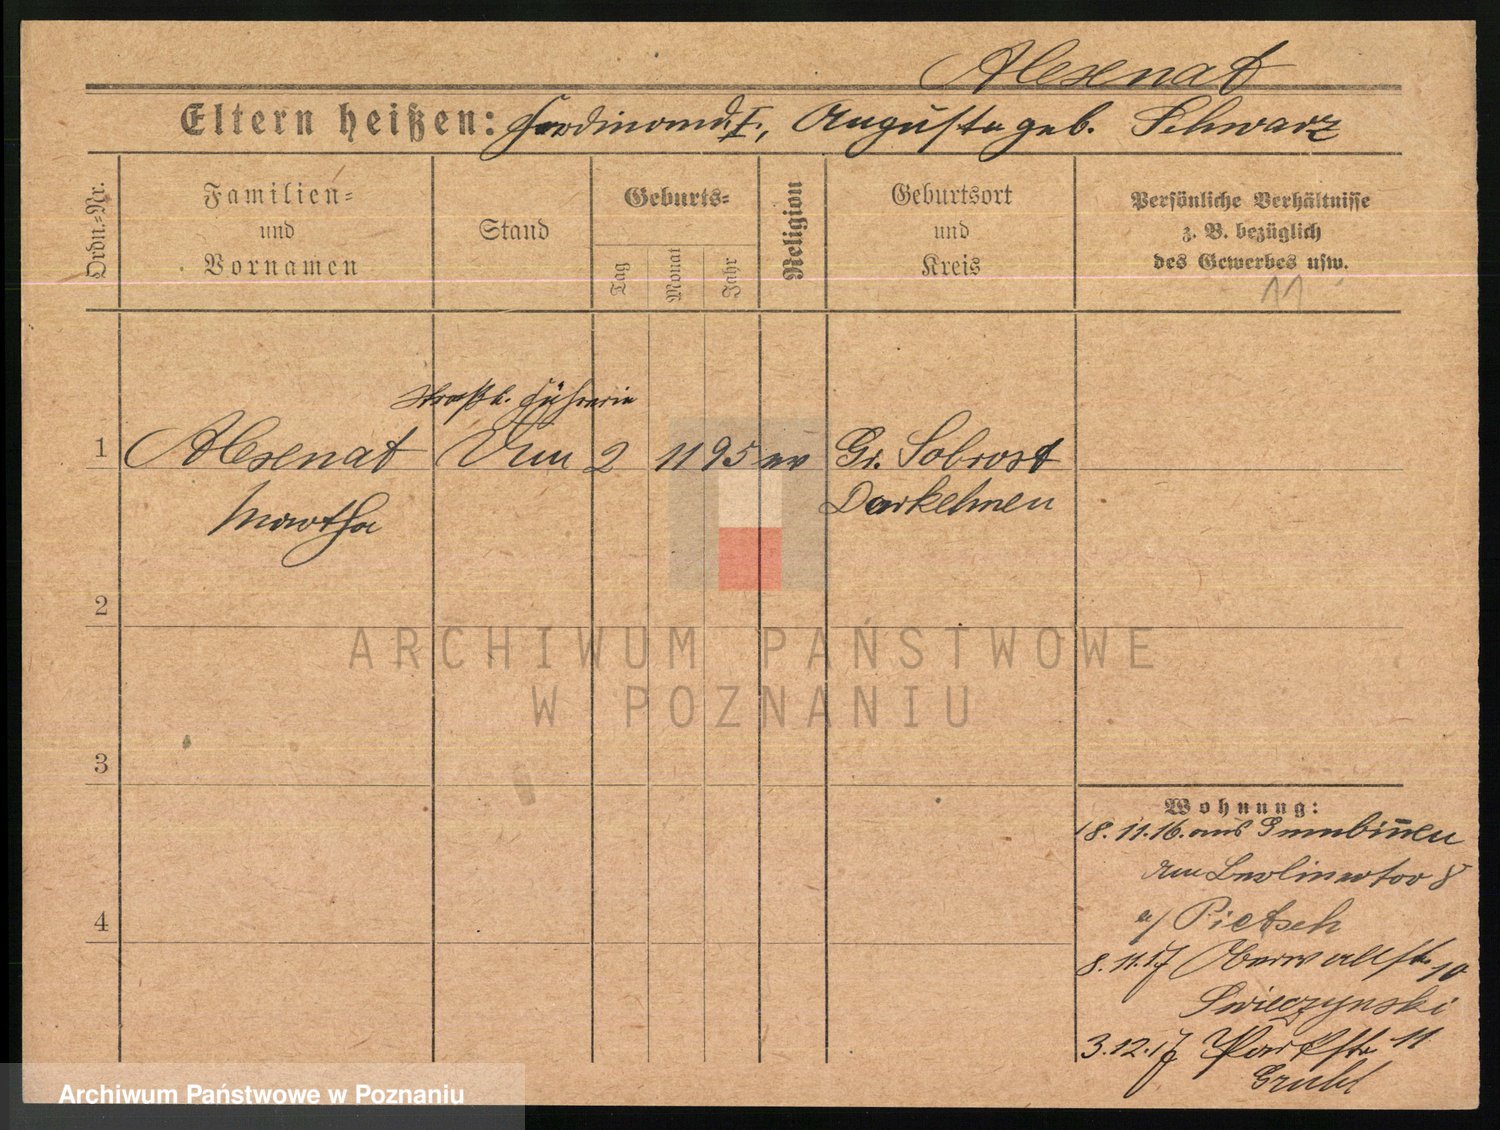 Alexenat
Eltern heißen: Ferdinand I., Auguste geb. Schwarz
Ordn.-Nr.
Familien-
und
Vornamen
Stand
Geburts-
Tag
Monat
Jahr
Religion
Geburtsort
und
Kreis
Persönliche Verhältnisse
z. B. bezüglich
des Gewerbes usw.
11
1 Alexenat 2 11 95 ev Gr. Sobrost
Martha Darkehmen
2
3
4
Wohnung:
18.11.16. aus Gumbinnen
Am Berlinertor 8
a/ Pietsch
8.11.17 Oberwallstr 10
Swieczynski
3.12.17 Parkstr 11
ARCHIWUM PAŃSTWOWE
W POZNANIU
Archiwum Państwowe w Poznaniu